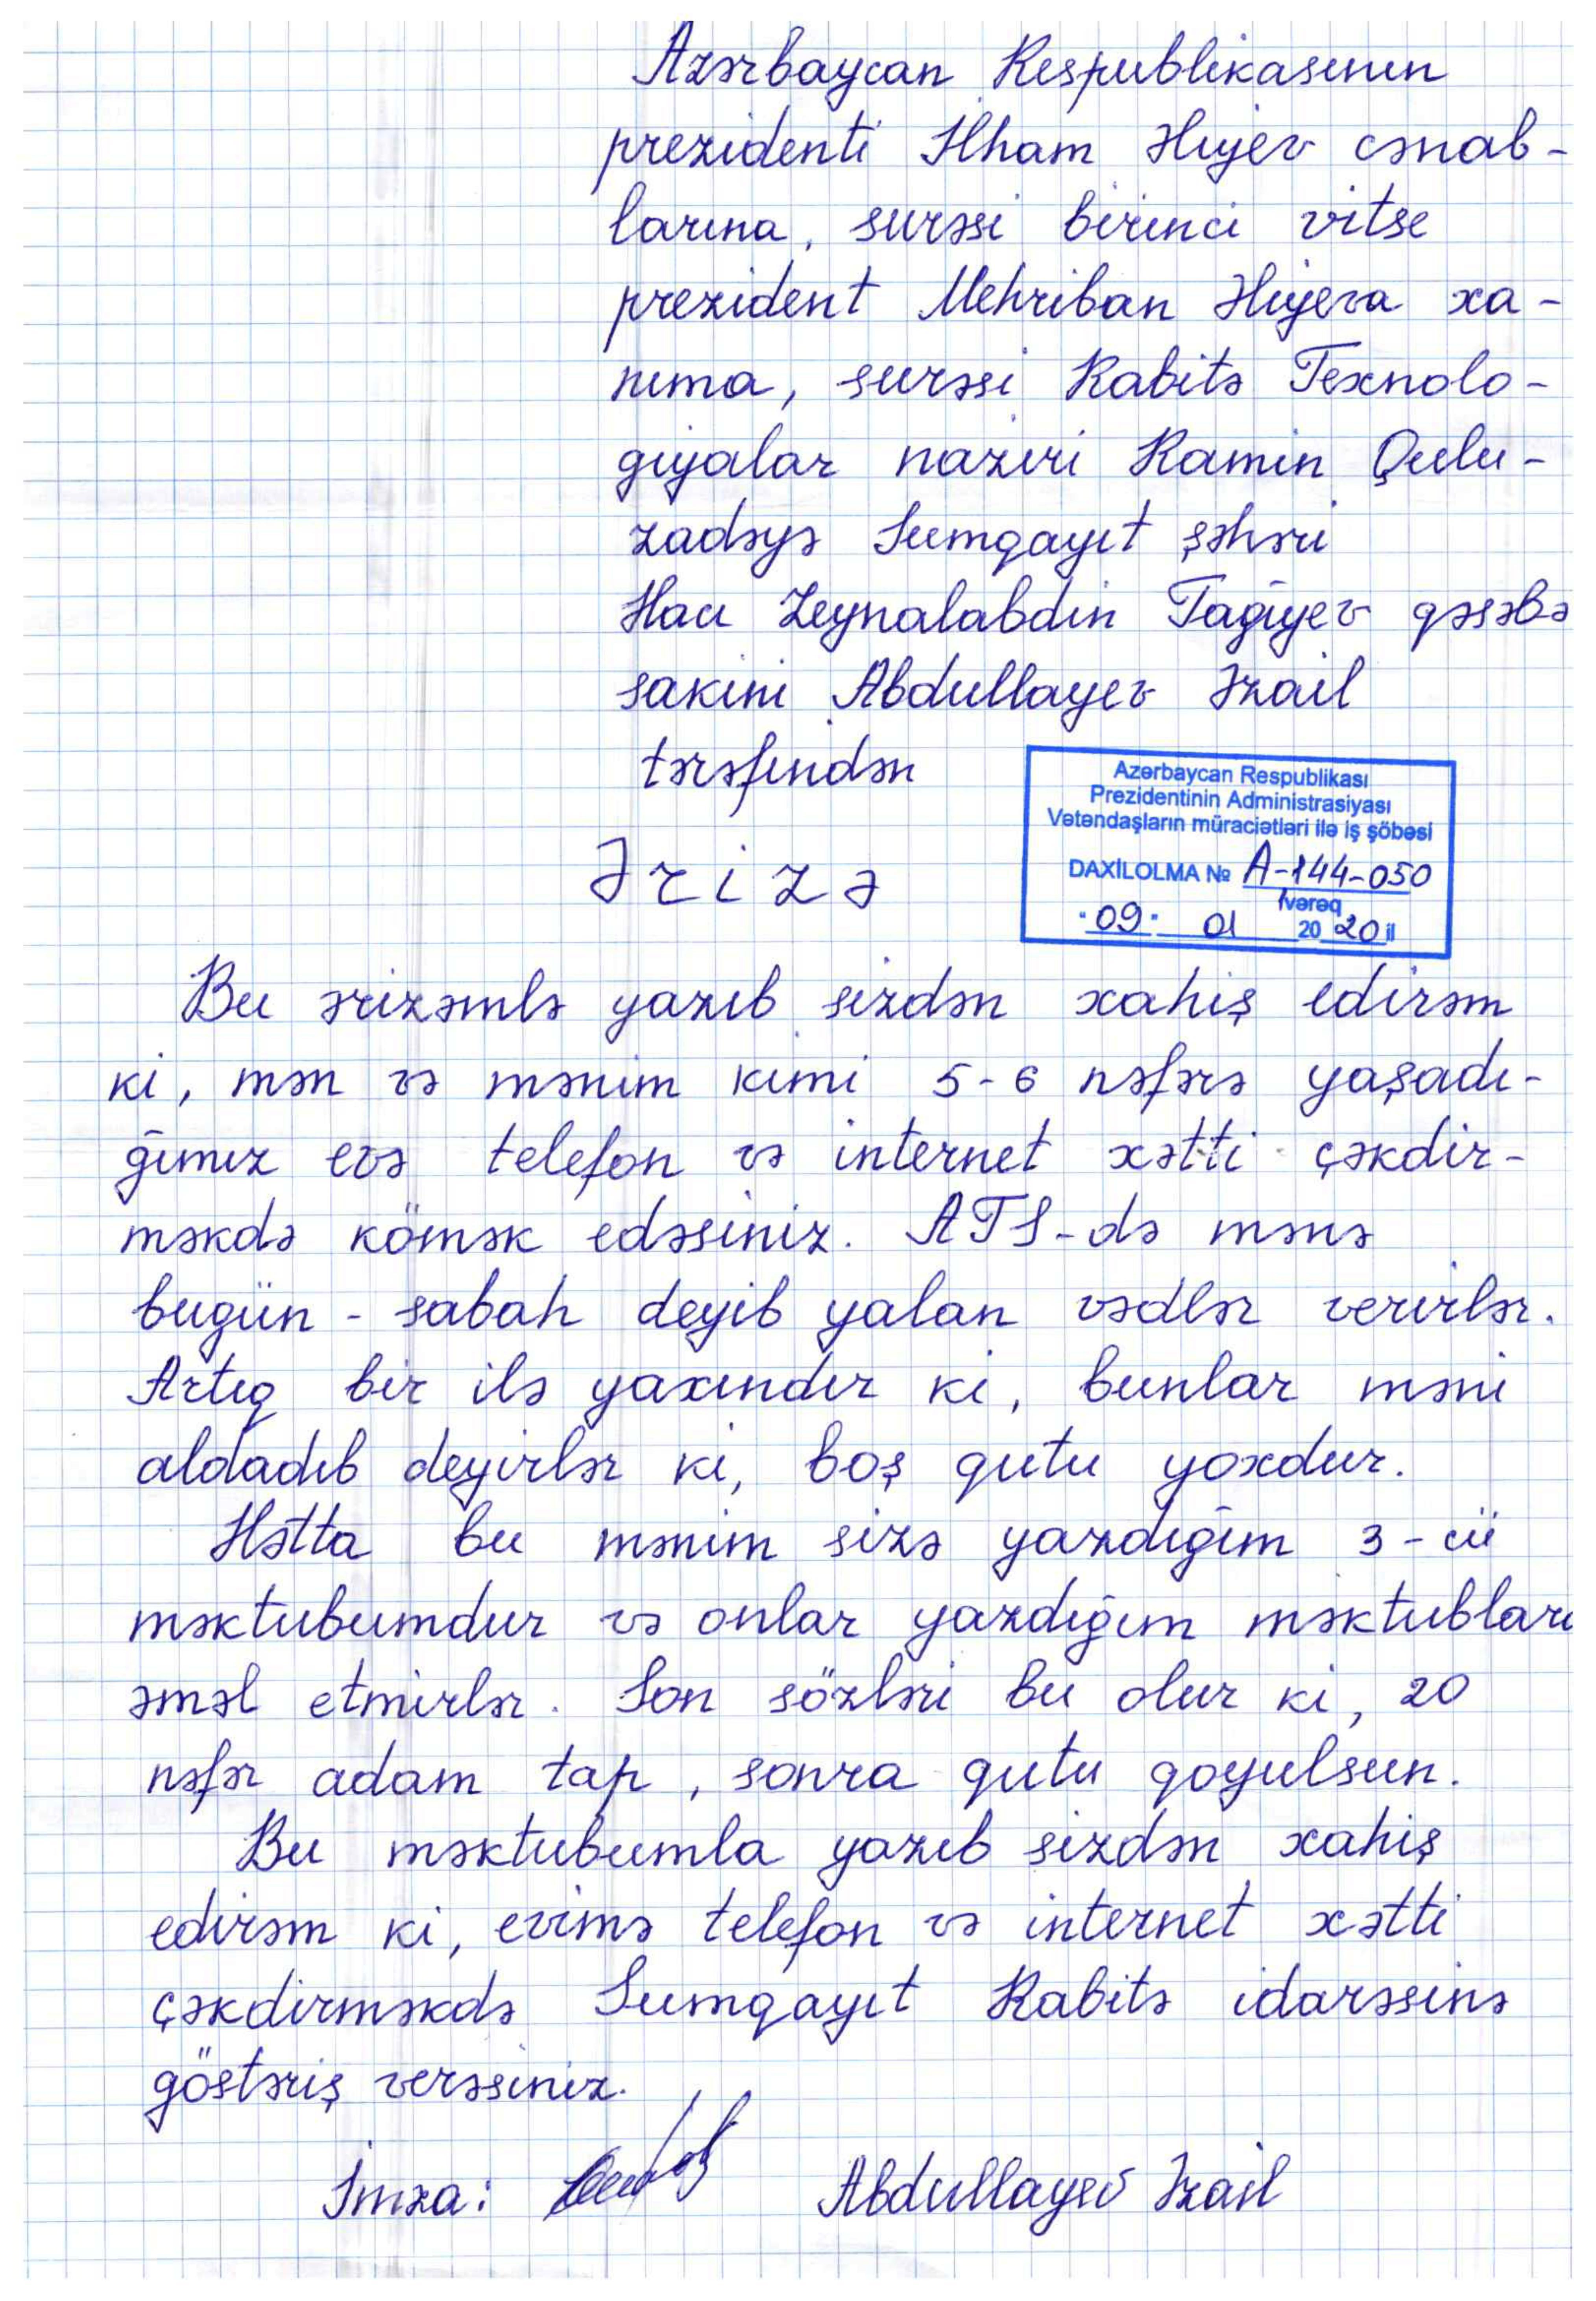 Azərbaycan Respublikasının
prezidenti İlham Əliyev cənab-
larına, surəsi birinci vitse
prezident Mehriban Əliyeva xa-
nıma, surəsi Rabitə Texnolo-
giyalar naziri Ramin Qulu-
zadəyə Sumqayıt şəhəri
Hacı Zeynalabdin Tağıyev qəsəbə
sakini Abdullayev Əzail
tərəfindən
Azərbaycan Respublikası
Prezidentinin Administrasiyası
Vətəndaşların müraciətləri ilə iş şöbəsi
DAXİLOLMA № A-144-050
1 vərəq
"09" 01 2020 il
Ərizə
Bu ərizəmlə yazıb sizdən xahiş edirəm
ki, mən və mənim kimi 5-6 nəfərə yaşadı-
ğımız evə telefon və internet xətti çəkdir-
məkdə kömək edəsiniz. ATS-də mənə
bugün - sabah deyib yalan vədlər verirlər.
Artıq bir ilə yaxındır ki, bunlar məni
aldadıb deyirlər ki, boş qutu yoxdur.
Hətta bu mənim sizə yazdığım 3-cü
məktubumdur və onlar yazdığım məktubları
əməl etmirlər. Son sözləri bu olur ki, 20
nəfər adam tap, sonra qutu qoyulsun.
Bu məktubumla yazıb sizdən xahiş
edirəm ki, evimə telefon və internet xətti
çəkdirməkdə Sumqayıt Rabitə idarəsinə
göstəriş verəsiniz.
İmza: Abdullayev Əzail